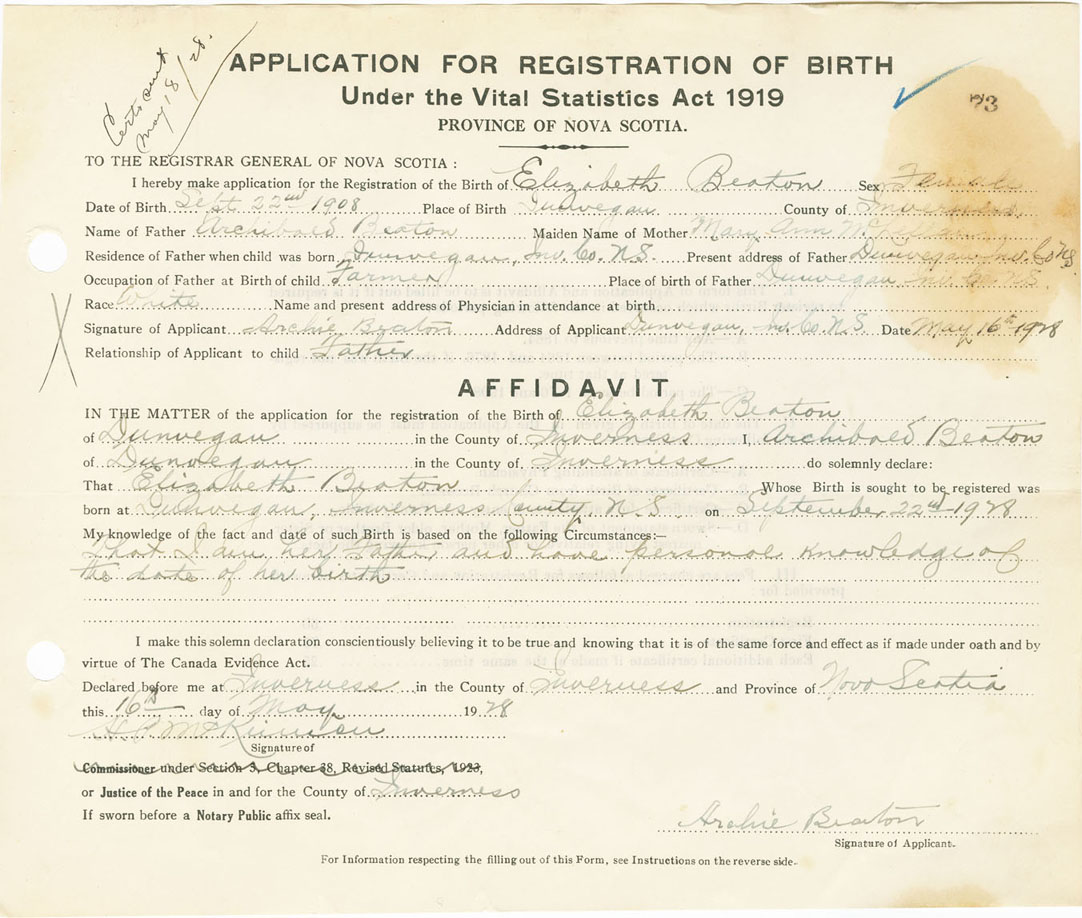 Certs sent
May 18/28.
APPLICATION FOR REGISTRATION OF BIRTH
73
Under the Vital Statistics Act 1919
PROVINCE OF NOVA SCOTIA.
TO THE REGISTRAR GENERAL OF NOVA SCOTIA :
I hereby make application for the Registration of the Birth of Elizabeth Beaton Sex Female
Date of Birth Sept 22nd 1908 Place of Birth Dunvegan County of Inverness
Name of Father Archibald Beaton Maiden Name of Mother Mary Ann
Residence of Father when child was born Dunvegan, Inv. Co. N.S. Present address of Father Dunvegan Inv. Co NS.
Occupation of Father at Birth of child Farmer Place of birth of Father Dunvegan Inv Co NS.
Race White Name and present address of Physician in attendance at birth
Signature of Applicant Archie Beaton Address of Applicant Dunvegan, Inv. Co. N.S. Date May 16th 1928
Relationship of Applicant to child Father
AFFIDAVIT
IN THE MATTER of the application for the registration of the Birth of Elizabeth Beaton
of Dunvegan in the County of Inverness I, Archibald Beaton
of Dunvegan in the County of Inverness do solemnly declare:
That Elizabeth Beaton Whose Birth is sought to be registered was
born at Dunvegan, Inverness County N.S on September 22nd 1928
My knowledge of the fact and date of such Birth is based on the following Circumstances:—
That I am her Father and have personal knowledge of
the date of her birth
I make this solemn declaration conscientiously believing it to be true and knowing that it is of the same force and effect as if made under oath and by
virtue of The Canada Evidence Act.
Declared before me at Inverness in the County of Inverness and Province of Nova Scotia
this 16th day of May 1928
McKinnon
Signature of
Commissioner under Section 3, Chapter 38, Revised Statutes, 1923,
or Justice of the Peace in and for the County of Inverness
If sworn before a Notary Public affix seal.
Archie Beaton
Signature of Applicant.
For Information respecting the filling out of this Form, see Instructions on the reverse side.